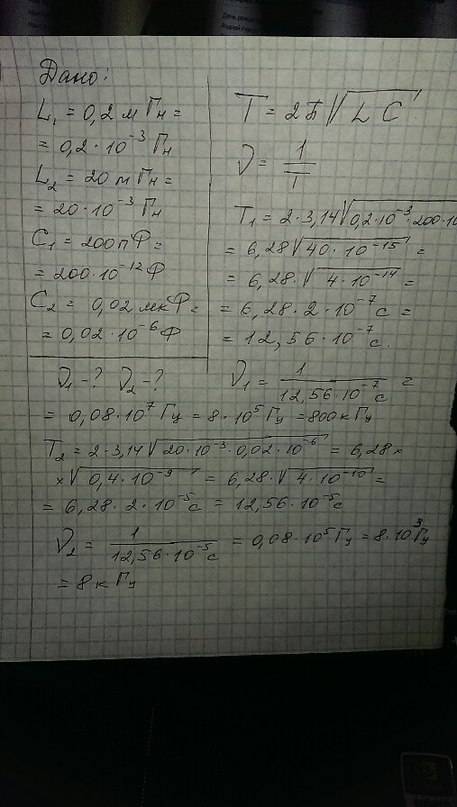 Дано:
L₁ = 0,2 мГн =
= 0,2·10⁻³ Гн
L₂ = 20 мГн =
= 20·10⁻³ Гн
C₁ = 200 пФ =
= 200·10⁻¹² Ф
C₂ = 0,02 мкФ =
= 0,02·10⁻⁶ Ф
ν₁ - ? ν₂ - ?
T = 2π√(LC)
ν = 1/T
T₁ = 2·3,14√(0,2·10⁻³·200·10
= 6,28√(40·10⁻¹⁵) =
= 6,28·√(4·10⁻¹⁴) =
= 6,28·2·10⁻⁷ с =
= 12,56·10⁻⁷ с.
ν₁ = 1/(12,56·10⁻⁷ с) =
= 0,08·10⁷ Гц = 8·10⁵ Гц = 800 кГц
T₂ = 2·3,14√(20·10⁻³·0,02·10⁻⁶) = 6,28 ×
× √(0,4·10⁻⁹) = 6,28·√(4·10⁻¹⁰) =
= 6,28·2·10⁻⁵ с = 12,56·10⁻⁵ с
ν₂ = 1/(12,56·10⁻⁵ с) = 0,08·10⁵ Гц = 8·10³ Гц
= 8 кГц